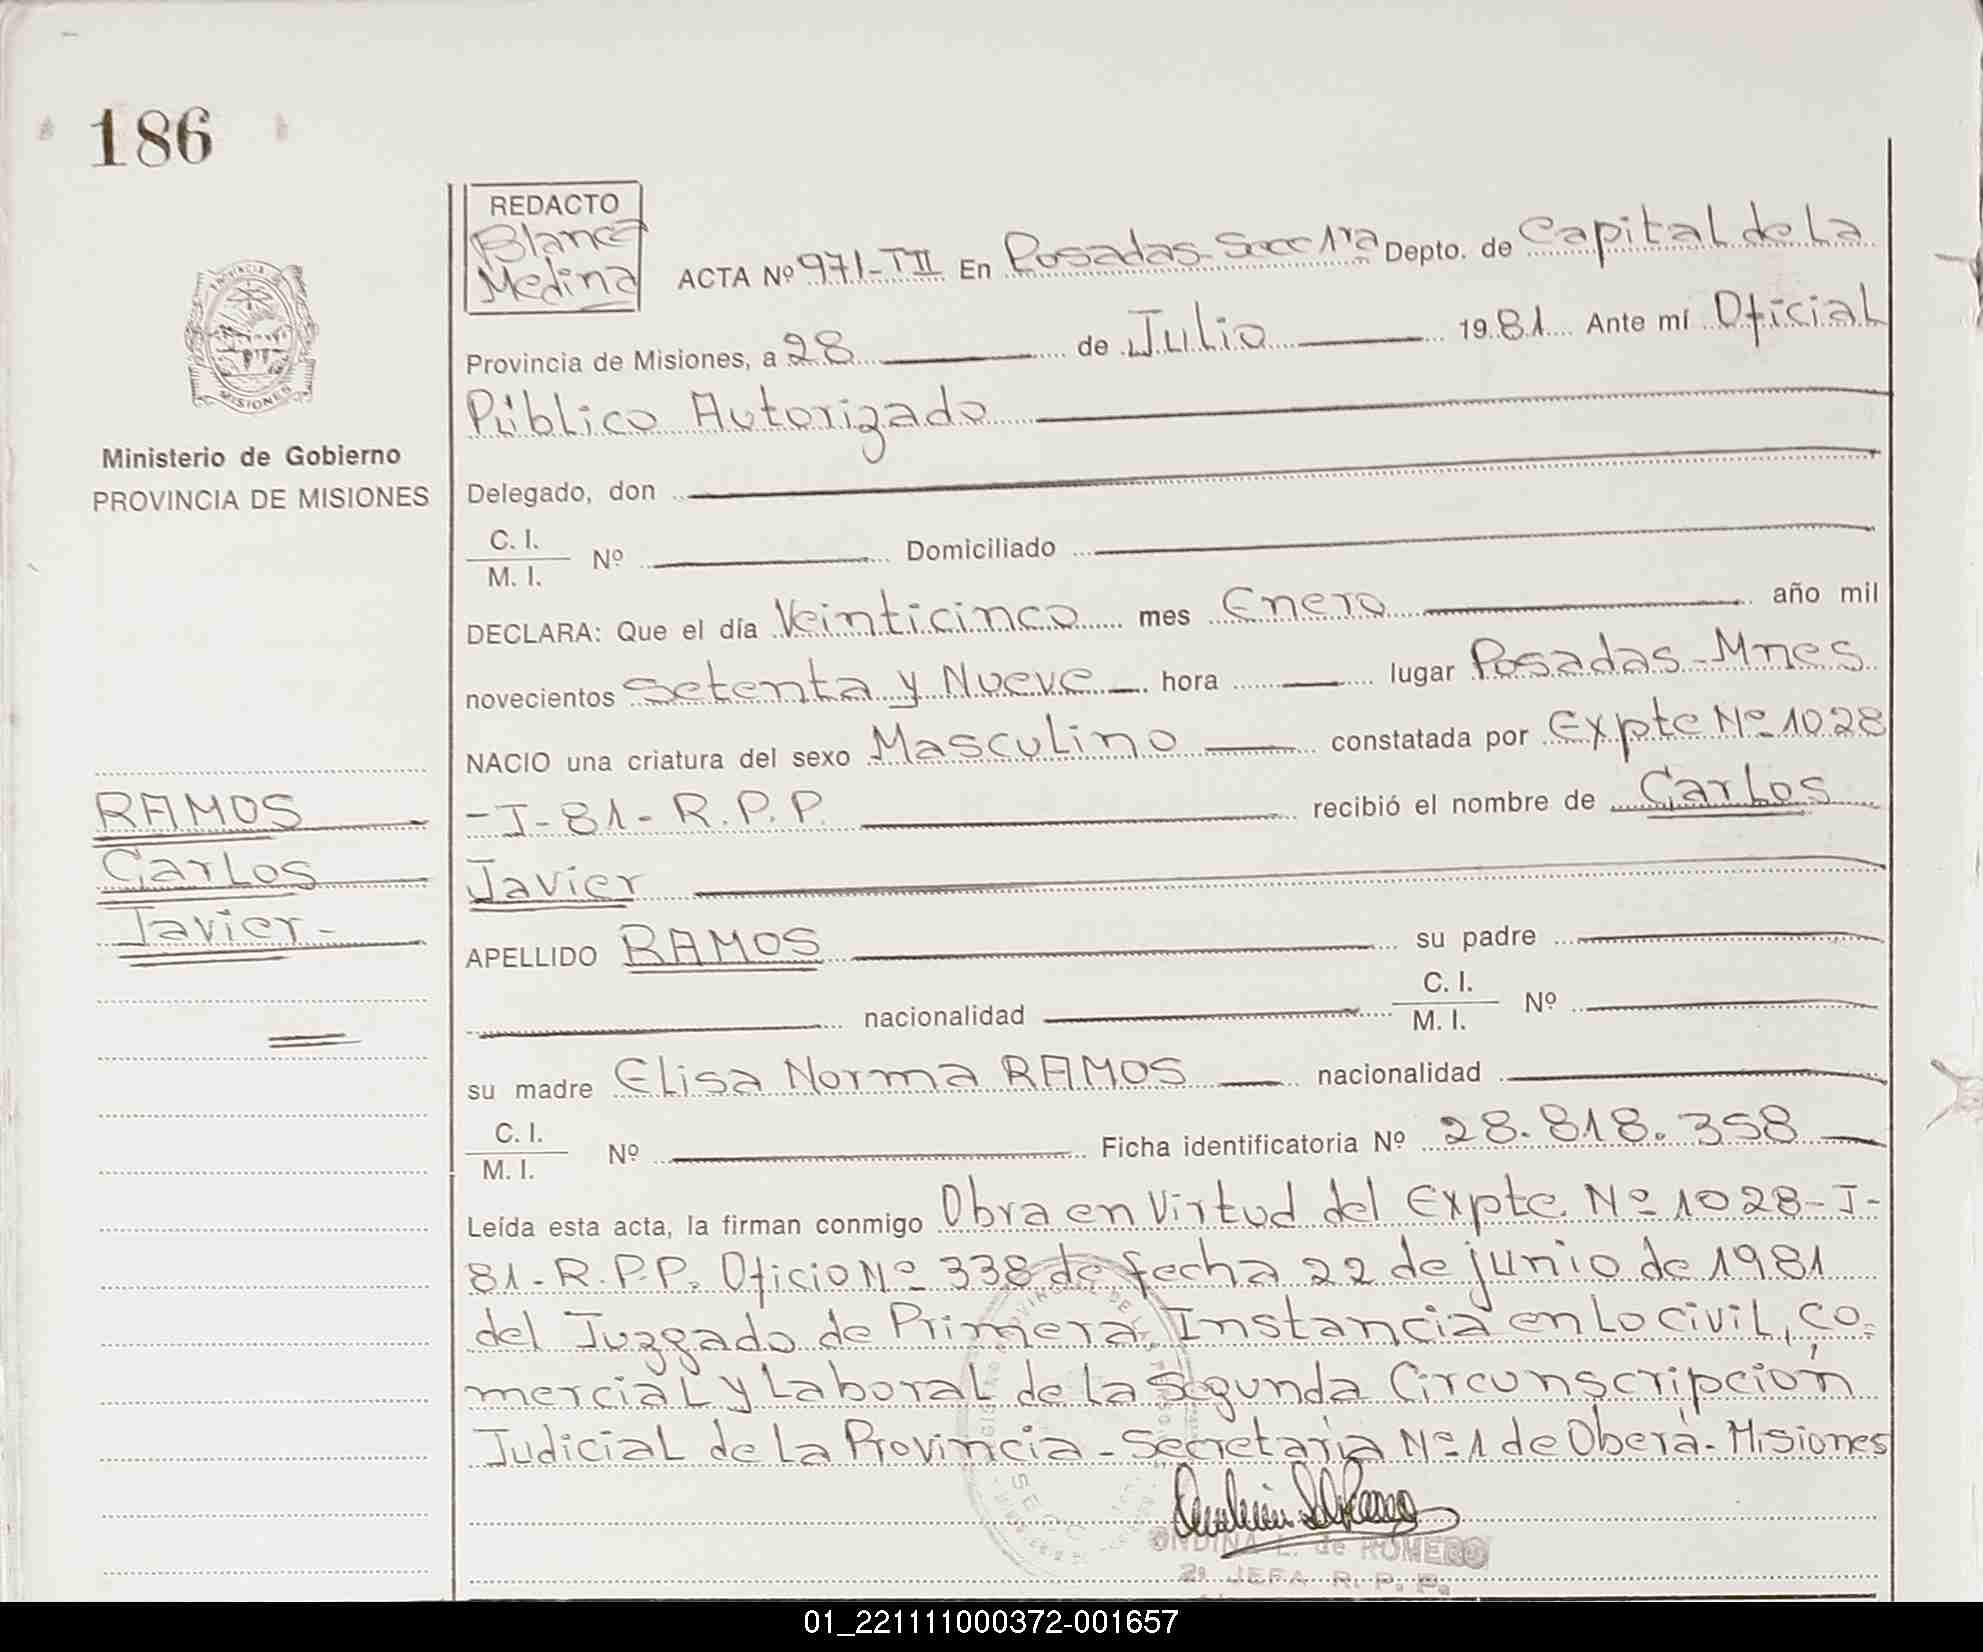 186
REDACTO
Blanca
Medina
ACTA Nº 971-TII En Posadas-Secc 1ra Depto. de Capital de La
Provincia de Misiones, a 28 de Julio 1981 Ante mí Oficial
Público Autorizado
PROVINCIA DE
MISIONES
Ministerio de Gobierno
PROVINCIA DE MISIONES
Delegado, don
C. I.
M. I. Nº Domiciliado
DECLARA: Que el día Veinticinco mes Enero año mil
novecientos Setenta y Nueve hora lugar Posadas-Mnes
NACIO una criatura del sexo Masculino constatada por Expte Nº 1028
-I-81-R.P.P. recibió el nombre de Carlos
Javier
RAMOS
Carlos
Javier-
APELLIDO RAMOS su padre
nacionalidad C. I.
M. I. Nº
su madre Elisa Norma RAMOS nacionalidad
C. I.
M. I. Nº Ficha identificatoria Nº 28.818.358
Leída esta acta, la firman conmigo Obra en Virtud del Expte. Nº 1028-I-
81-R.P.P. Oficio Nº 338 de fecha 22 de junio de 1981
del Juzgado de Primera Instancia en Lo Civil, Co=
mercial y Laboral de la Segunda Circunscripción
Judicial de La Provincia-Secretaría Nº 1 de Oberá-Misiones
SECC
ONDINA L. de ROMERO
2ª JEFA R. P. P.
01_221111000372-001657